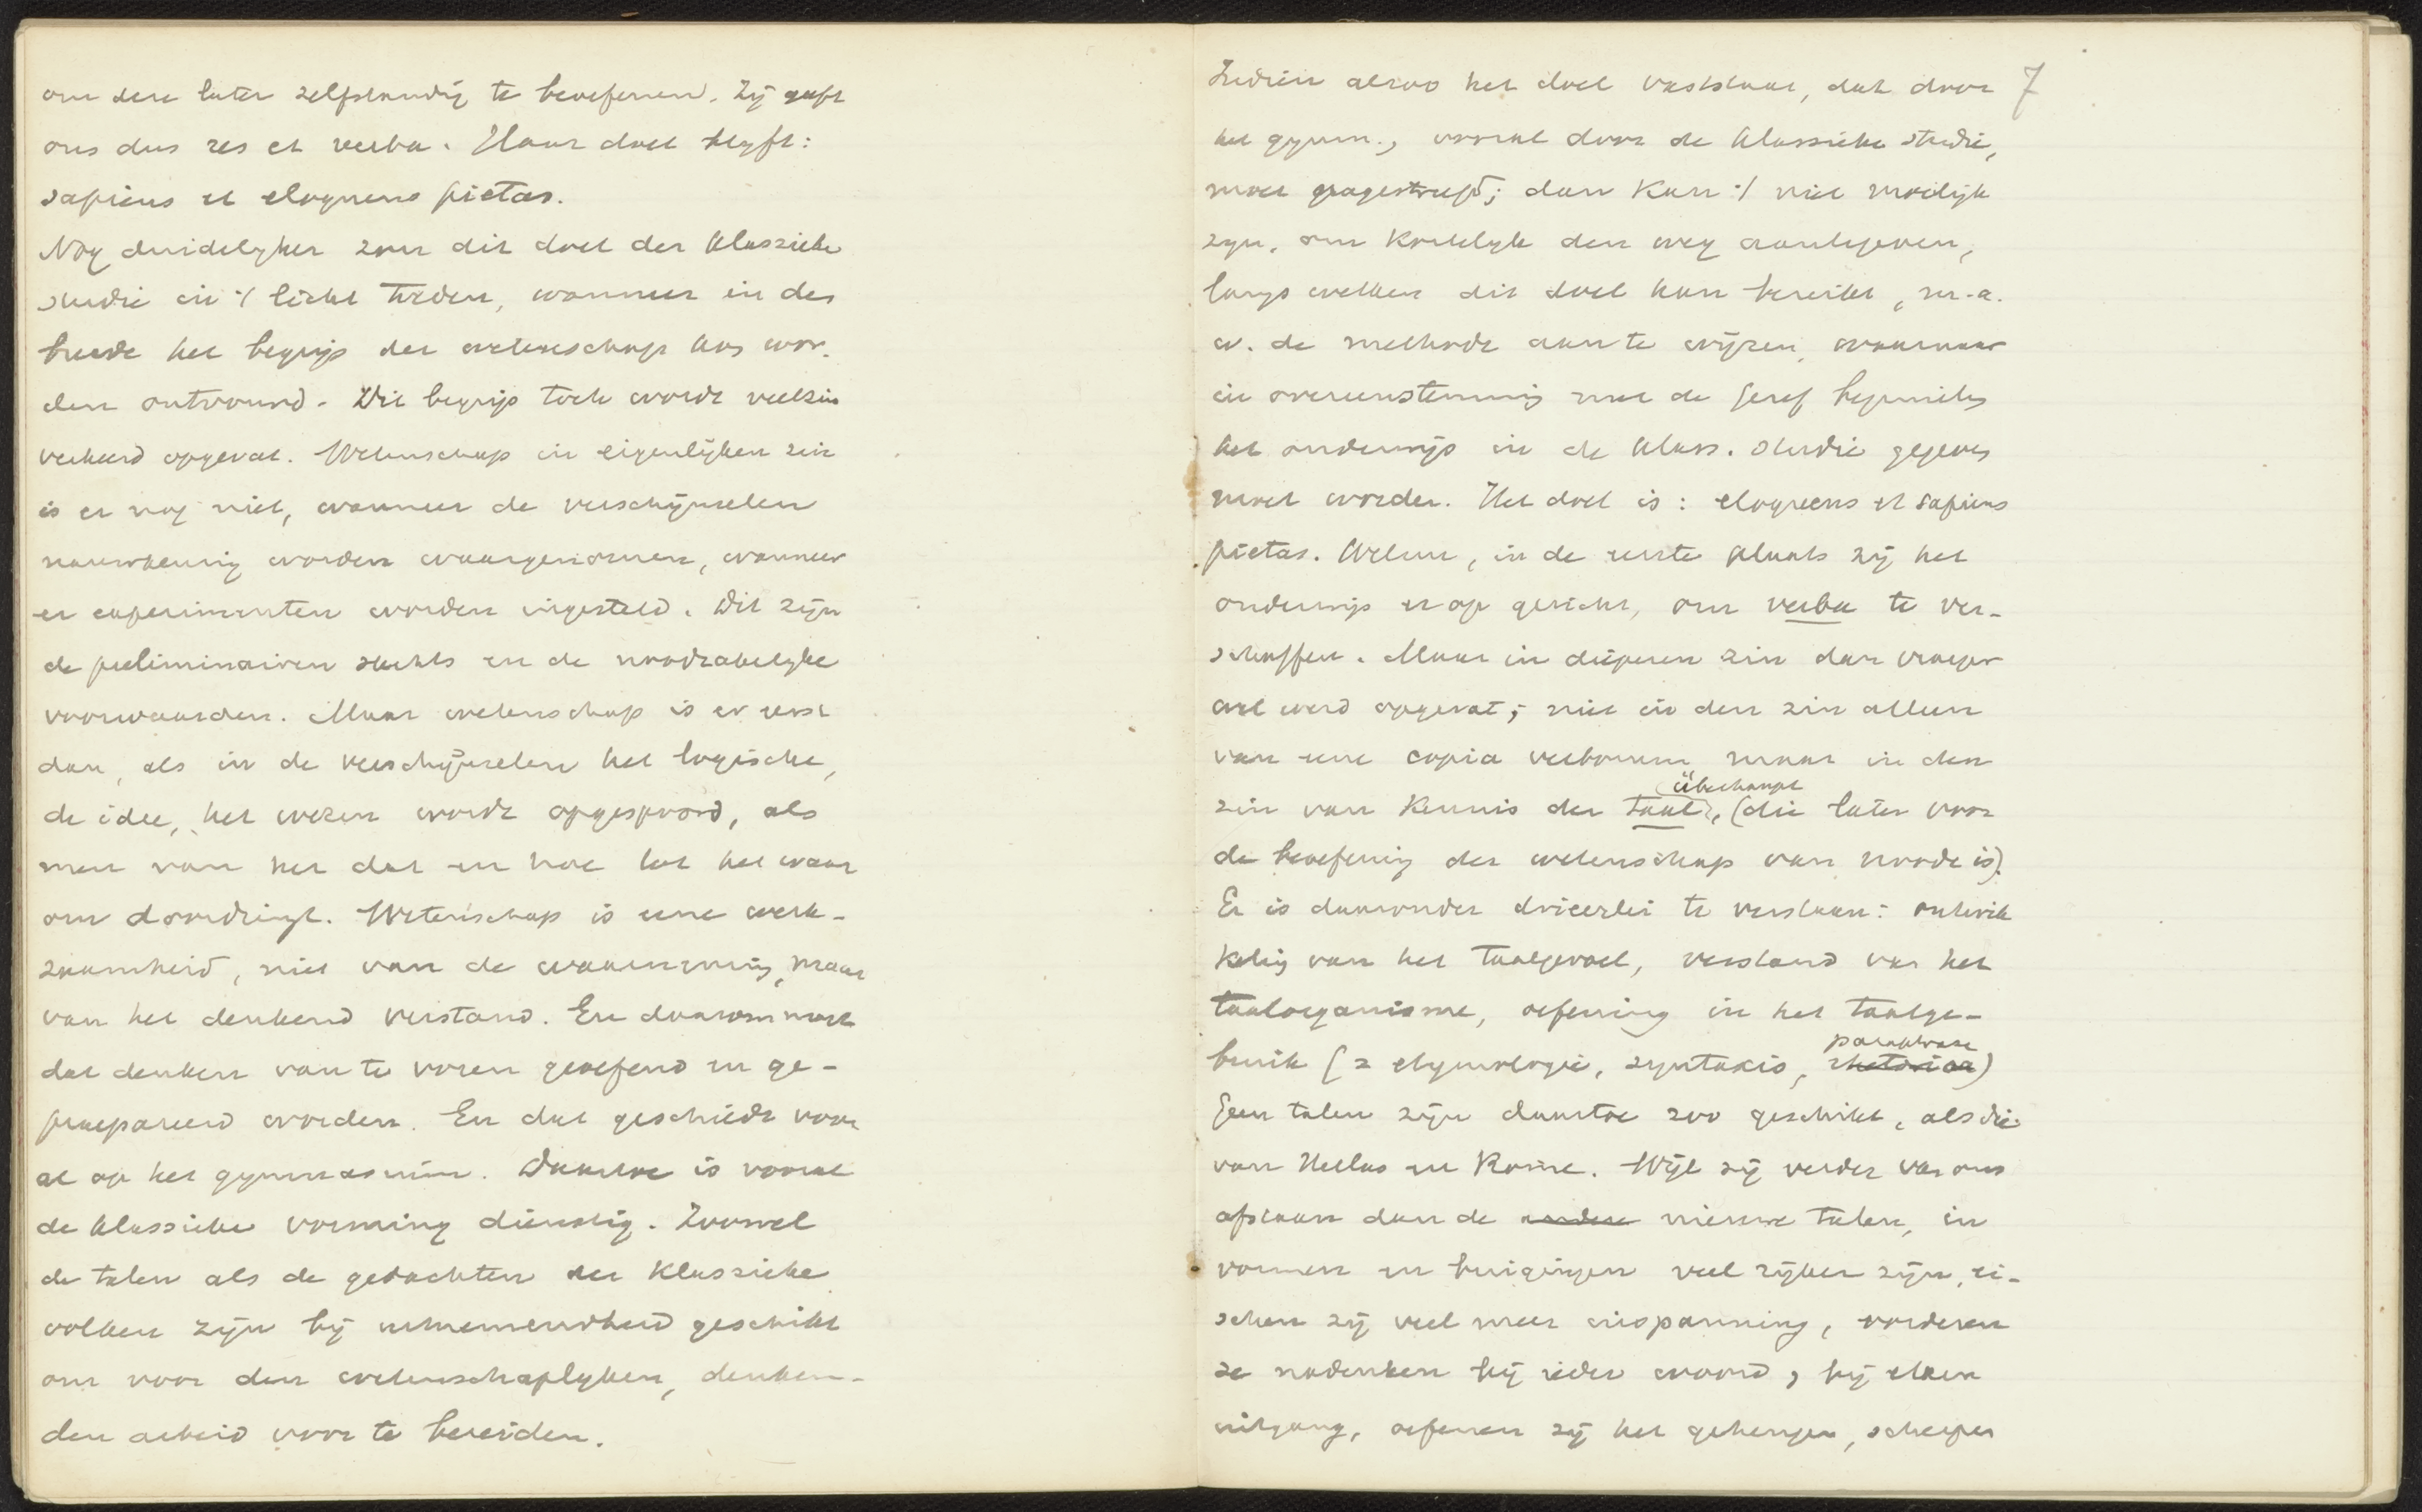 om deze later zelfstandig te beoefenen. Zij geeft
ons dus res et verba. Haar doel blyft:
sapiens et eloquens pietas.
Nog duidelyker zou dit doel der klassieke
studie in 't licht treden, wanneer in den
breede het begrip der wetenschap kon wor-
den ontvouwd. Dit begrip toch wordt veelzins
verkeerd opgevat. Wetenschap in eigenlijken zin
is er nog niet, wanneer de verschijnselen
nauwkeurig worden waargenomen, wanneer
er experimenten worden ingesteld. Dit zijn
de preliminairen slechts en de noodzakelyke
voorwaarden. Maar wetenschap is er eerst
dan, als in de verschijnselen het logische,
de idee, het wezen wordt opgespoord, als
men van het dat en hoe tot het waar
om doordringt. Wetenschap is eene werk-
zaamheid, niet van de waarneming, maar
van het denkend verstand. En daarom moet
dat denken van te voren geoefend en ge-
praepareerd worden. En dat geschiedt voor
al op het gymnasium. Daartoe is vooral
de klassieke vorming dienstig. Zoowel
de talen als de gedachten der klassieke
volken zijn bij uitnemendheid geschikt
om voor den wetenschaplyken, denken-
den arbeid voor te bereiden.
7
Indien alzoo het doel vaststaat, dat door
het gymn., vooral door de klassieke studie,
moet nagestreefd; dan kan 't niet moeilyk
zyn, om kortelyk den weg aantegeven,
langs welken dit doel kan bereikt, m.a.
w. de methode aan te wijzen, waarnaar
in overeenstemming met de Geref beginselen
het onderwijs in de klass. studie gegeven
moet worden. Het doel is: eloquens et sapiens
pietas. Welnu, in de eerste plaats zij het
onderwijs er op gericht, om verba te ver-
schaffen. Maar in dieperen zin dan vroeger
wel werd opgevat; niet in den zin alleen
van eene copia verborum maar in den
überhaupt
zin van kennis der taal, (die later voor
de beoefening der wetenschap van noode is).
Er is daaronder drieerlei te verstaan: ontwik
keling van het taalgevoel, verstand van het
taalorganisme, oefening in het taalge-
paraphrase
bruik (= etymologie, syntaxis, rhetorica)
Geen talen zijn daartoe zoo geschikt, als die
van Hellas en Rome. Wijl zij verder van ons
afstaan dan de andere nieuwe talen, in
vormen en buigingen veel rijker zijn, ei-
schen zij veel meer inspanning, vorderen
ze nadenken bij ieder woord, bij elken
uitgang, oefenen zij het geheugen, scherpen